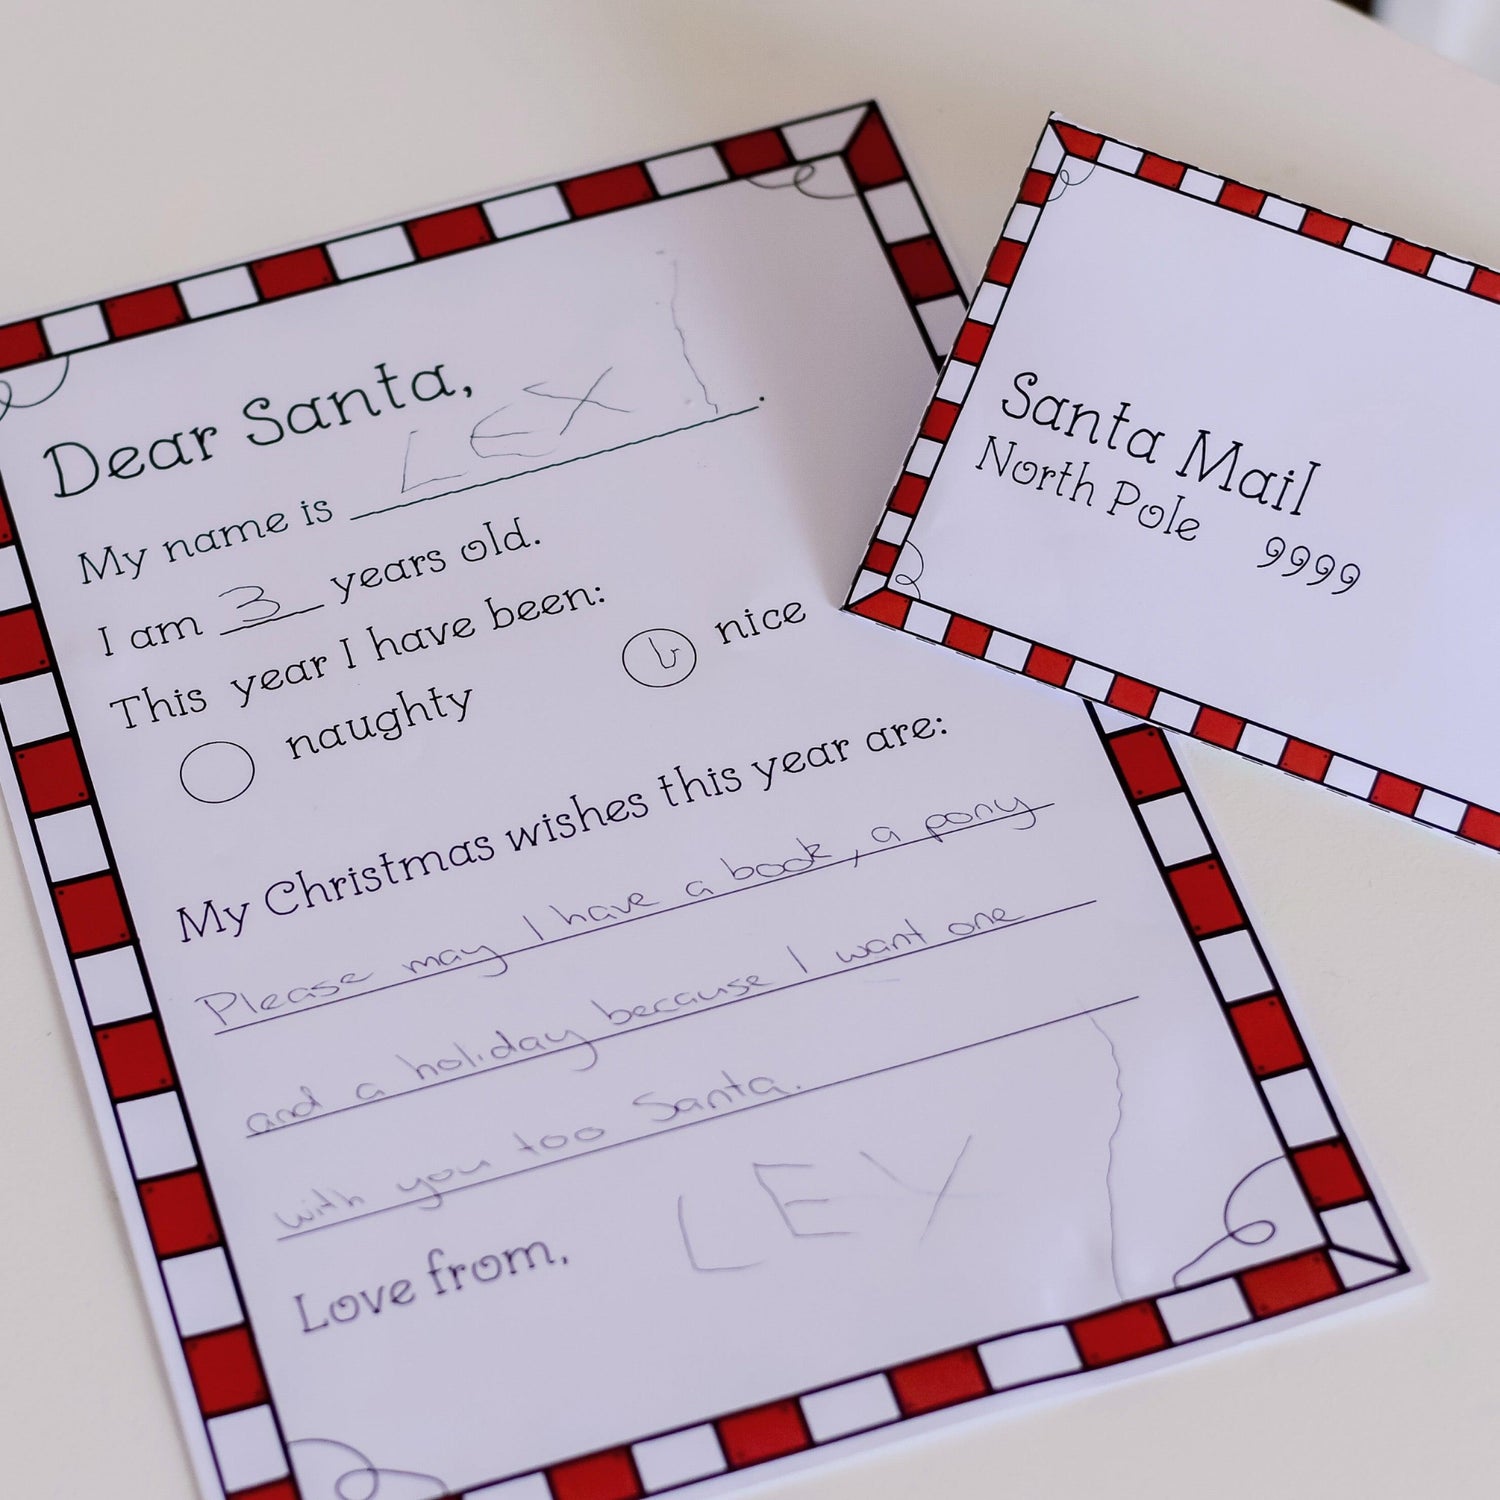 Dear Santa,
My name is LEXI.
I am 3 years old.
This year I have been:
naughty
nice
My Christmas wishes this year are:
Please may I have a book, a pony
and a holiday because I want one
with you too Santa.
Love from, LEXI
Santa Mail
North Pole 9999